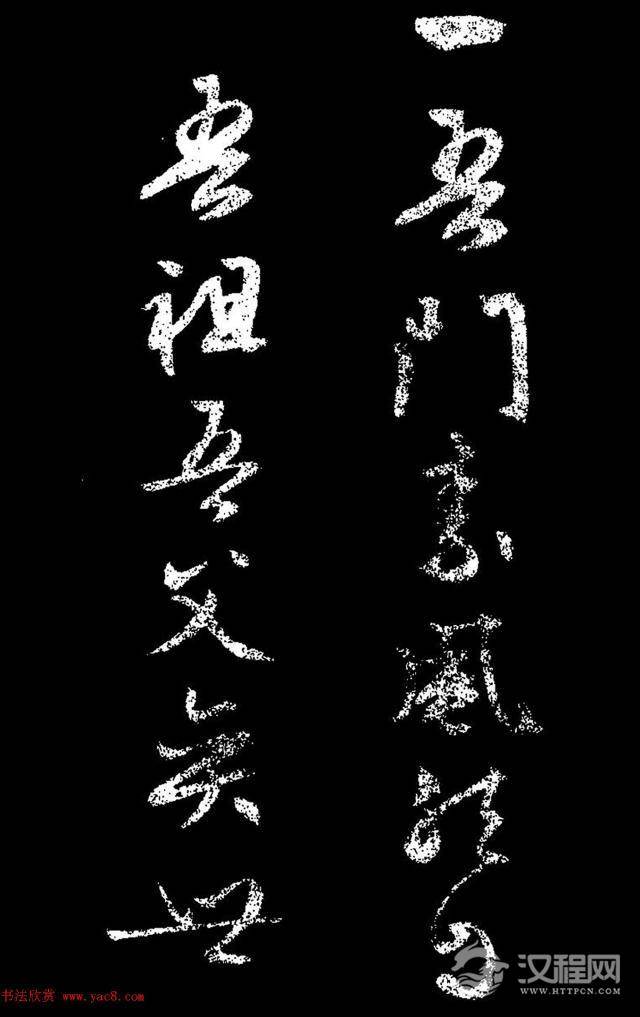 一吾門素風
吾祖吾父奕世
书法欣赏 www.yac8.com
汉程网
WWW.HTTPCN.COM